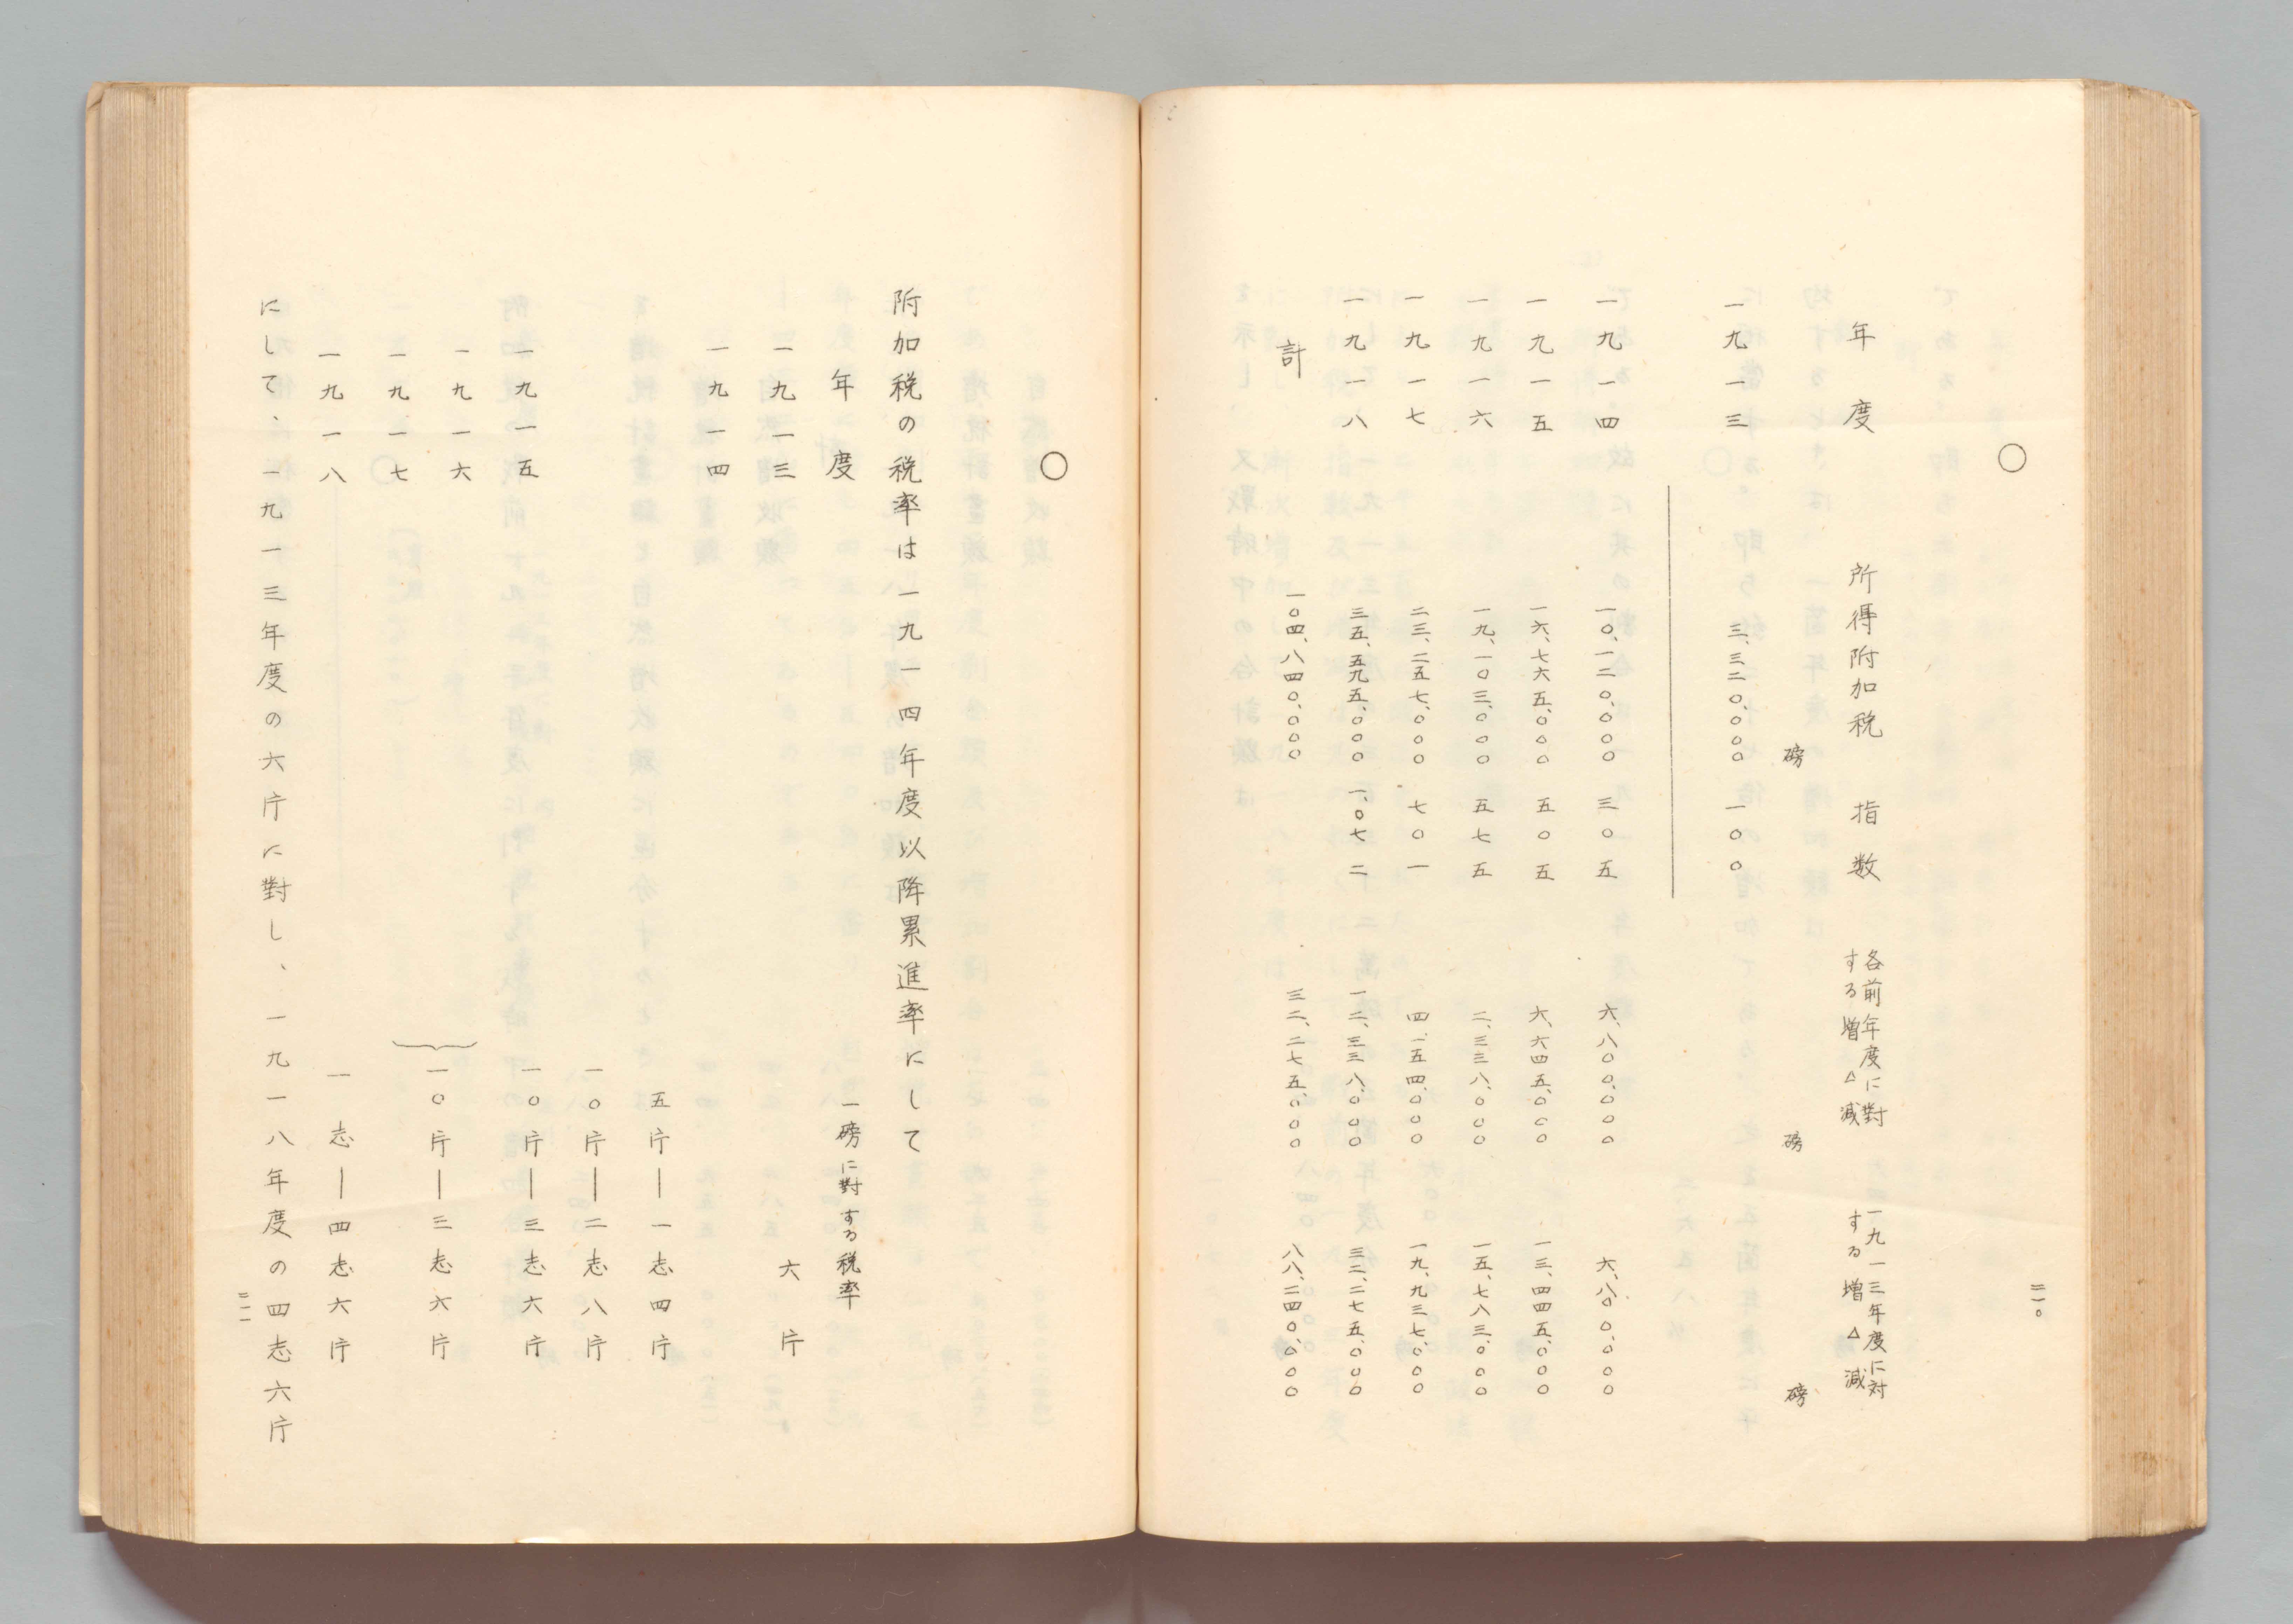 〇
年度 所得附加税 指数 各前年度に對する増△減 一九一三年度に対する増△減
磅 磅 磅
一九一三 三、三二〇、〇〇〇 一〇〇
一九一四 一〇、一二〇、〇〇〇 三〇五 六、八〇〇、〇〇〇 六、八〇〇、〇〇〇
一九一五 一六、七六五、〇〇〇 五〇五 六、六四五、〇〇〇 一三、四四五、〇〇〇
一九一六 一九、一〇三、〇〇〇 五七五 二、三三八、〇〇〇 一五、七八三、〇〇〇
一九一七 二三、二五七、〇〇〇 七〇一 四、一五四、〇〇〇 一九、九三七、〇〇〇
一九一八 三五、五九五、〇〇〇 一、〇七二 一二、三三八、〇〇〇 三二、二七五、〇〇〇
計 一〇四、八四〇、〇〇〇 三二、二七五、〇〇〇 八八、二四〇、〇〇〇
二一〇
〇
附加税の税率は一九一四年度以降累進率にして
年度 一磅に對する税率
一九一三 六片
一九一四 五片―一志四片
一九一五 一〇片―二志八片
一〇片―三志六片
一九一六
一九一七 一〇片―三志六片
一九一八 一志―四志六片
にして、一九一三年度の六片に對し、一九一八年度の四志六片
二一一